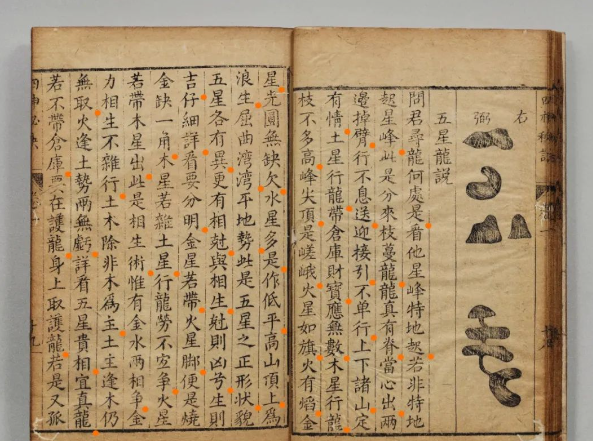 右
弼
五星龍說
問君尋龍何處是看他星峰特地起若非特地
起星峰此是分來枝蔓龍龍真有脊當心出兩
邊掉臂行不息送迎接引不單行上下諸山定
有情土星行龍帶倉庫財寶應無數木星行龍
枝不多高峰尖頂是嵯峨火星如旗火有焰金
星光圓無缺欠水星多是作低平高山頂上為
浪生屈曲灣灣平地勢此是五星之正形狀貌
五星各有異更有相剋與相生剋則凶兮生則
吉仔細詳看要分明金星若帶火星腳便是燒
金缺一角木星若雜土星行龍勞不空爭火星
若帶木星出此是相生術惟有金水兩相爭金
力相生不雜行土木除非木為主土主逢木仍
無取火逢土勢兩無虧詳看五星貴相宜真龍
若不帶倉庫要在護龍身上取護龍若是又孤